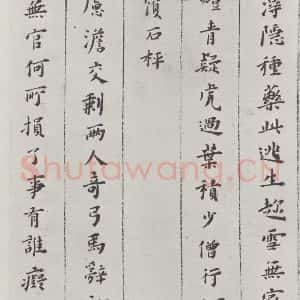 隱種藥此逃生 雪無
青疑虎過葉積少僧行
石枰
澹交剩兩人奇弓馬辭
無官何所損了事有誰癡
Shufawang.CN